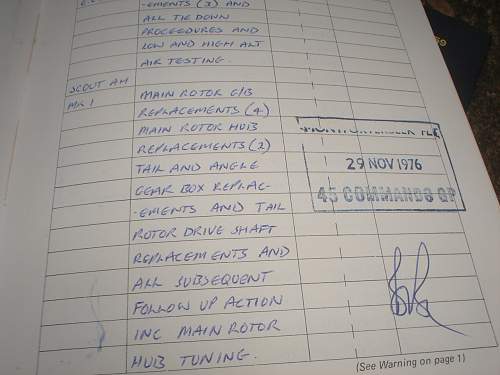 -EMENTS (3) AND
ALL TIE DOWN
PROCEEDURES AND
LOW AND HIGH ALT
AIR TESTING.
SCOUT AH MAIN ROTOR G/B
MK 1 REPLACEMENTS (4)
MAIN ROTOR HUB
REPLACEMENTS (2)
TAIL AND ANGLE
GEAR BOX REPLAC-
-EMENTS AND TAIL
ROTOR DRIVE SHAFT
REPLACEMENTS AND
ALL SUBSEQUENT
FOLLOW UP ACTION
INC MAIN ROTOR
HUB TUNING.
29 NOV 1976
45 COMMANDO GP
(See Warning on page 1)